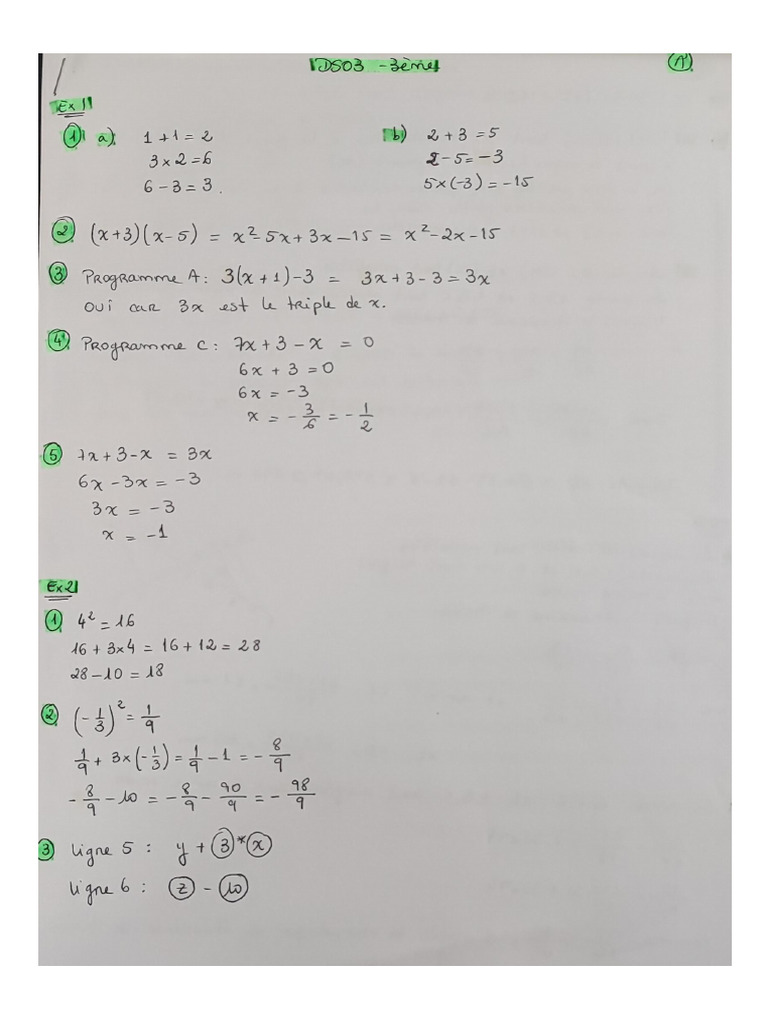 DS03 - 3ème A
Ex 1
1 a) 1 + 1 = 2
3 × 2 = 6
6 - 3 = 3.
b) 2 + 3 = 5
2 - 5 = -3
5 × (-3) = -15
2 (x+3)(x-5) = x² - 5x + 3x - 15 = x² - 2x - 15
3 Programme A : 3(x+1) - 3 = 3x + 3 - 3 = 3x
Oui car 3x est le triple de x.
4 Programme C : 7x + 3 - x = 0
6x + 3 = 0
6x = -3
x = -3/6 = -1/2
5 7x + 3 - x = 3x
6x - 3x = -3
3x = -3
x = -1
Ex 2
1 4² = 16
16 + 3×4 = 16 + 12 = 28
28 - 10 = 18
2 (-1/3)² = 1/9
1/9 + 3×(-1/3) = 1/9 - 1 = -8/9
-8/9 - 10 = -8/9 - 90/9 = -98/9
3 ligne 5 : y + 3 * x
ligne 6 : z - 10